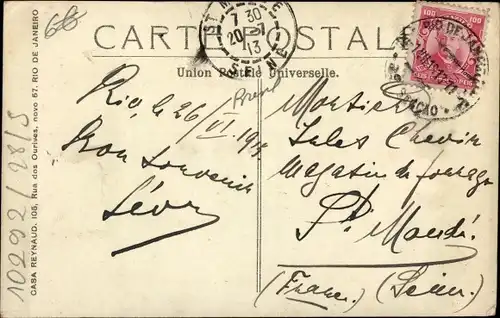 CARTE POSTALE
Union Postale Universelle.
7 30
20 - 7
13
SEINE
100 100
RIO DE JANEIRO
Rio, le 26/VI. 1913
Bon souvenir
Lévy
Monsieur
Jules Chevin
Magasin de fourrage
St. Mandé.
(France.) (Seine.)
CASA REYNAUD. 105, Rua dos Ourives, novo 57. RIO DE JANEIRO
10292/28/5